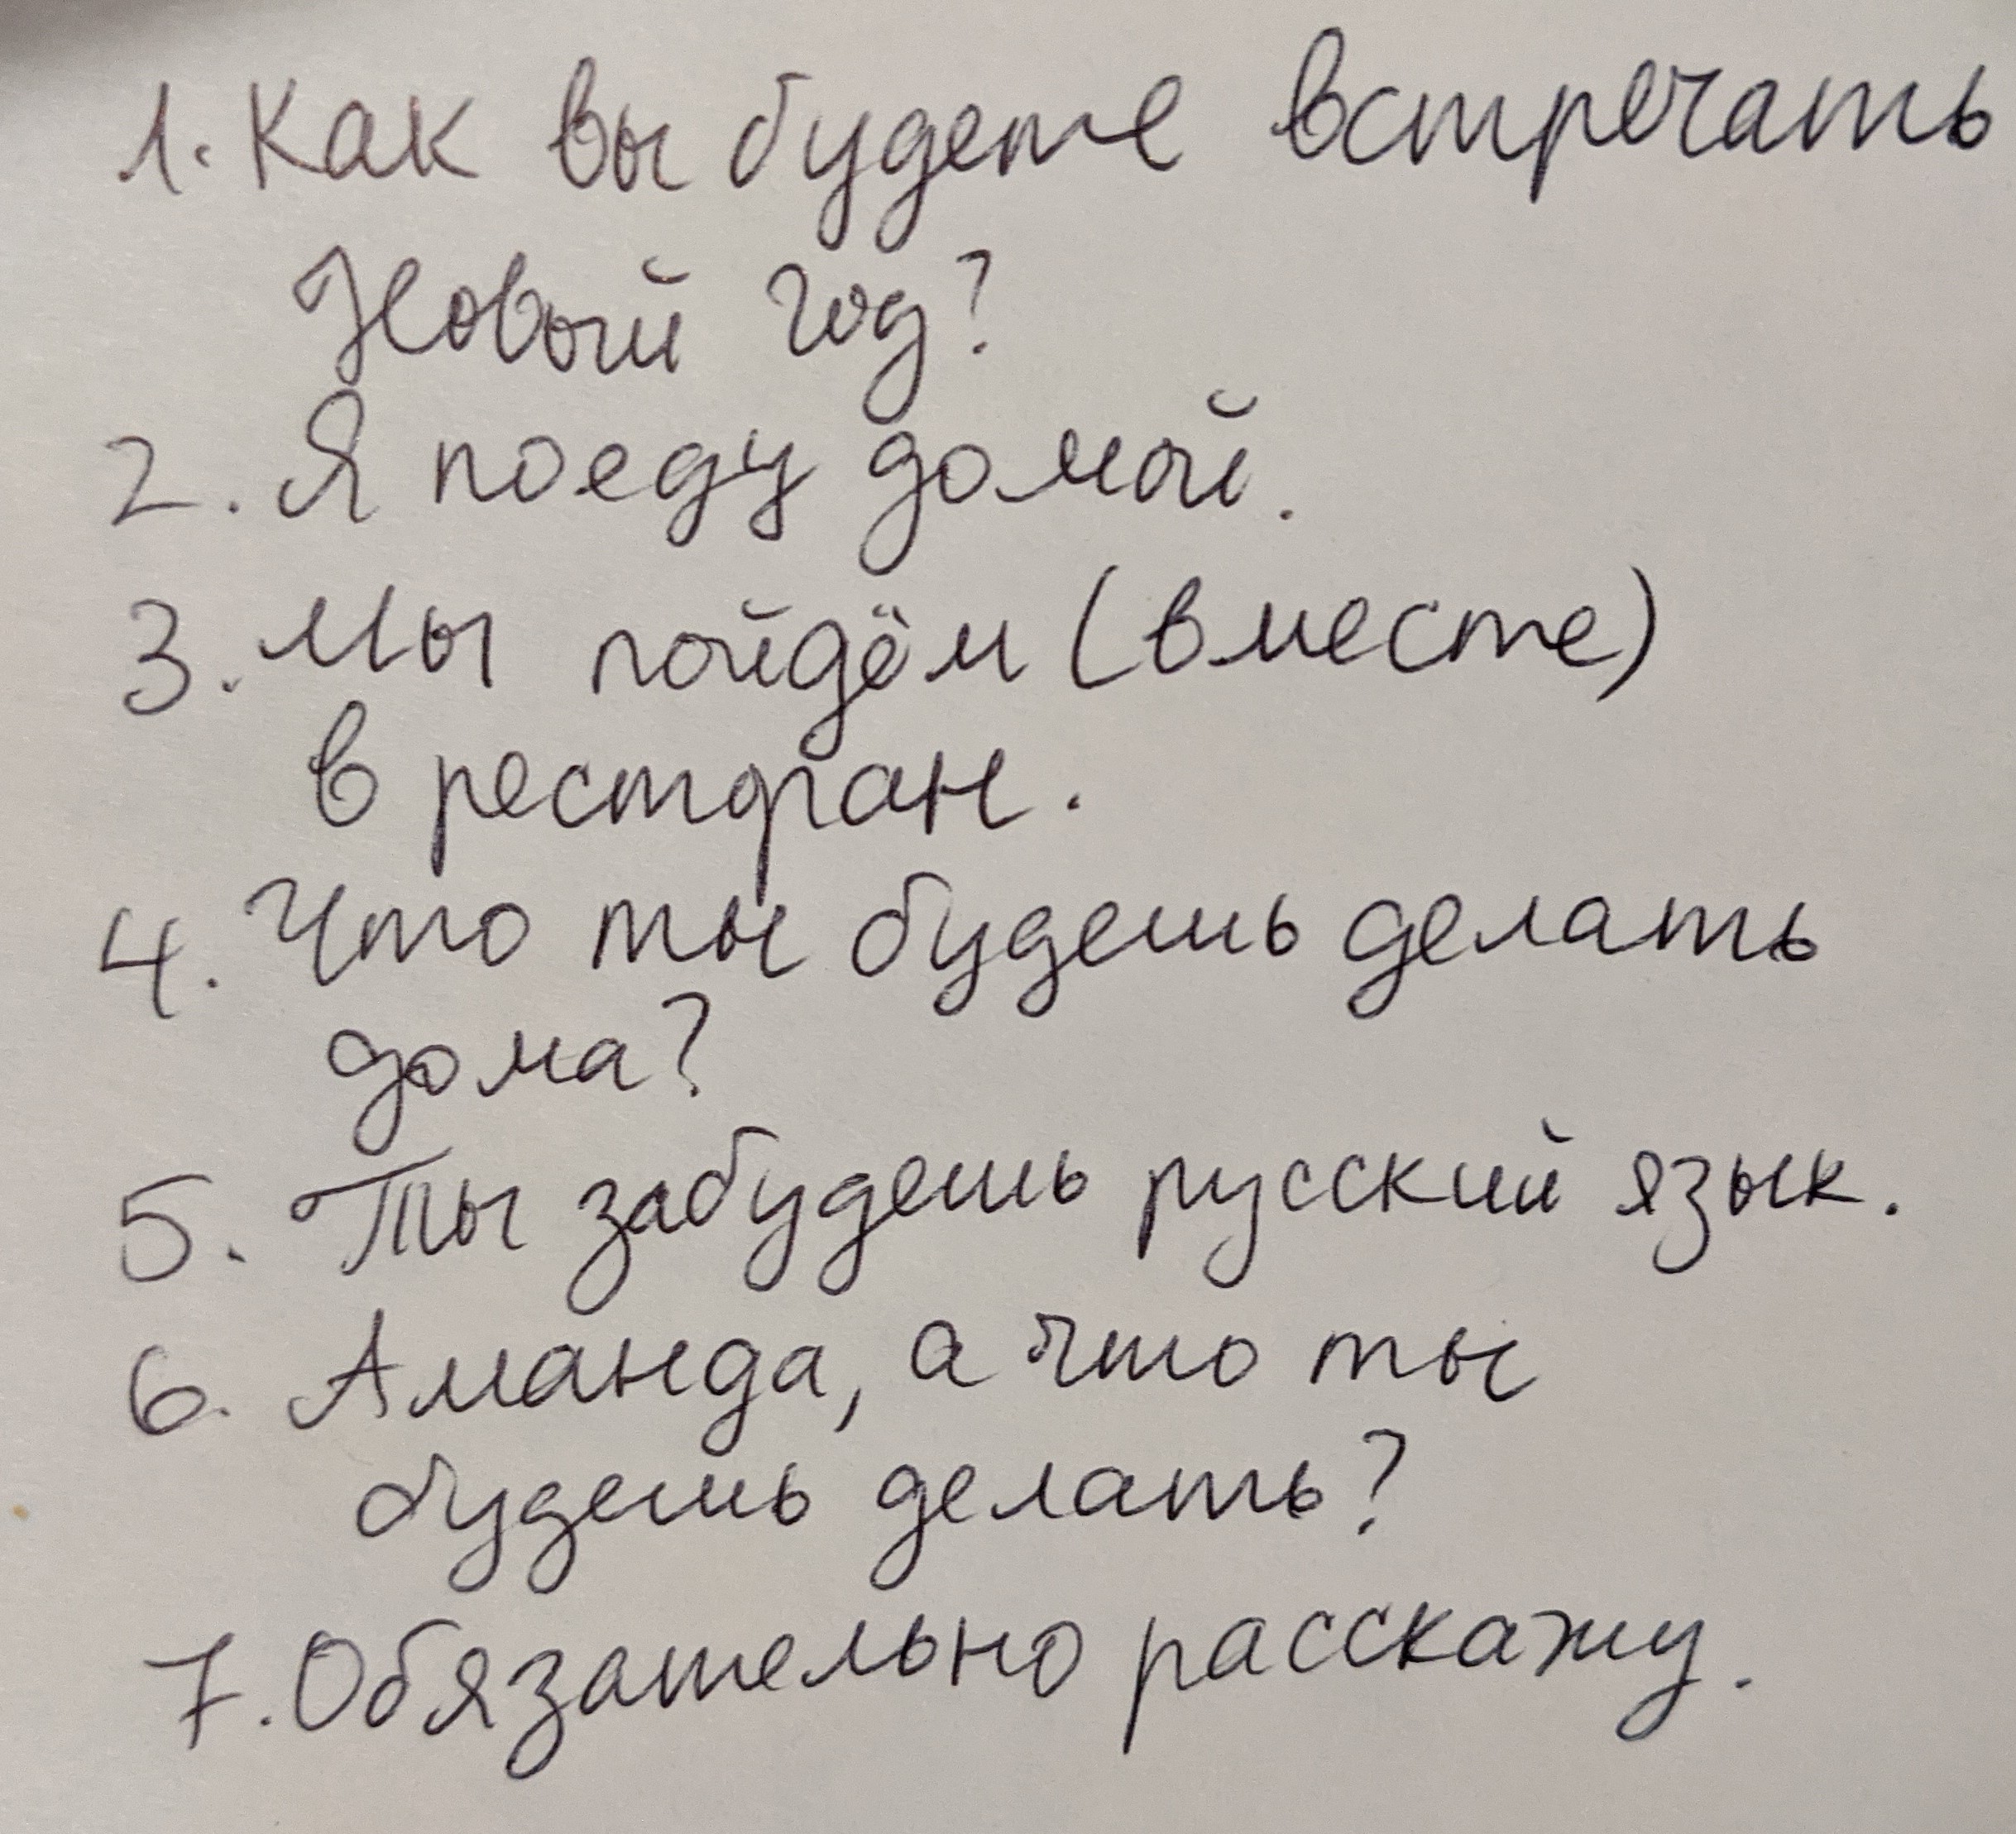 1. Как вы будете встречать
Новый год?
2. Я поеду домой.
3. Мы пойдём (вместе)
в ресторан.
4. Что ты будешь делать
дома?
5. Ты забудешь русский язык.
6. Аманда, а что ты
будешь делать?
7. Обязательно расскажу.